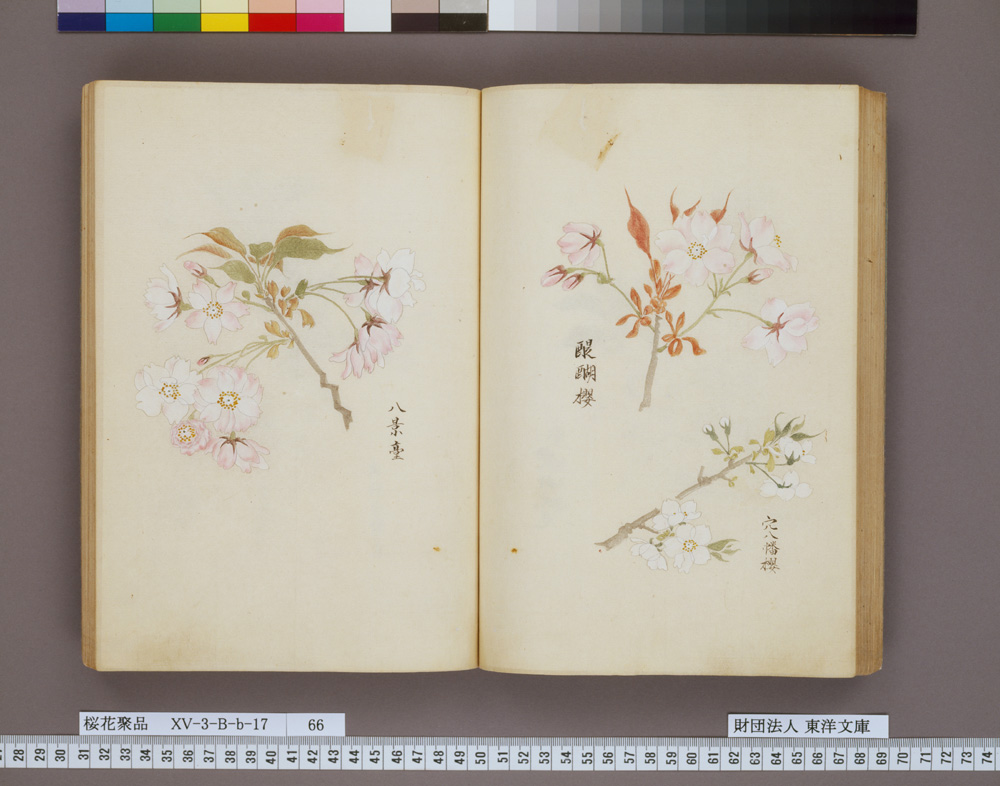 醍醐櫻
穴八幡櫻
八景臺
桜花聚品 XV-3-B-b-17 66
財団法人 東洋文庫
28 29 30 31 32 33 34 35 36 37 38 39 40 41 42 43 44 45 46 47 48 49 50 51 52 53 54 55 56 57 58 59 60 61 62 63 64 65 66 67 68 69 70 71 72 73 74